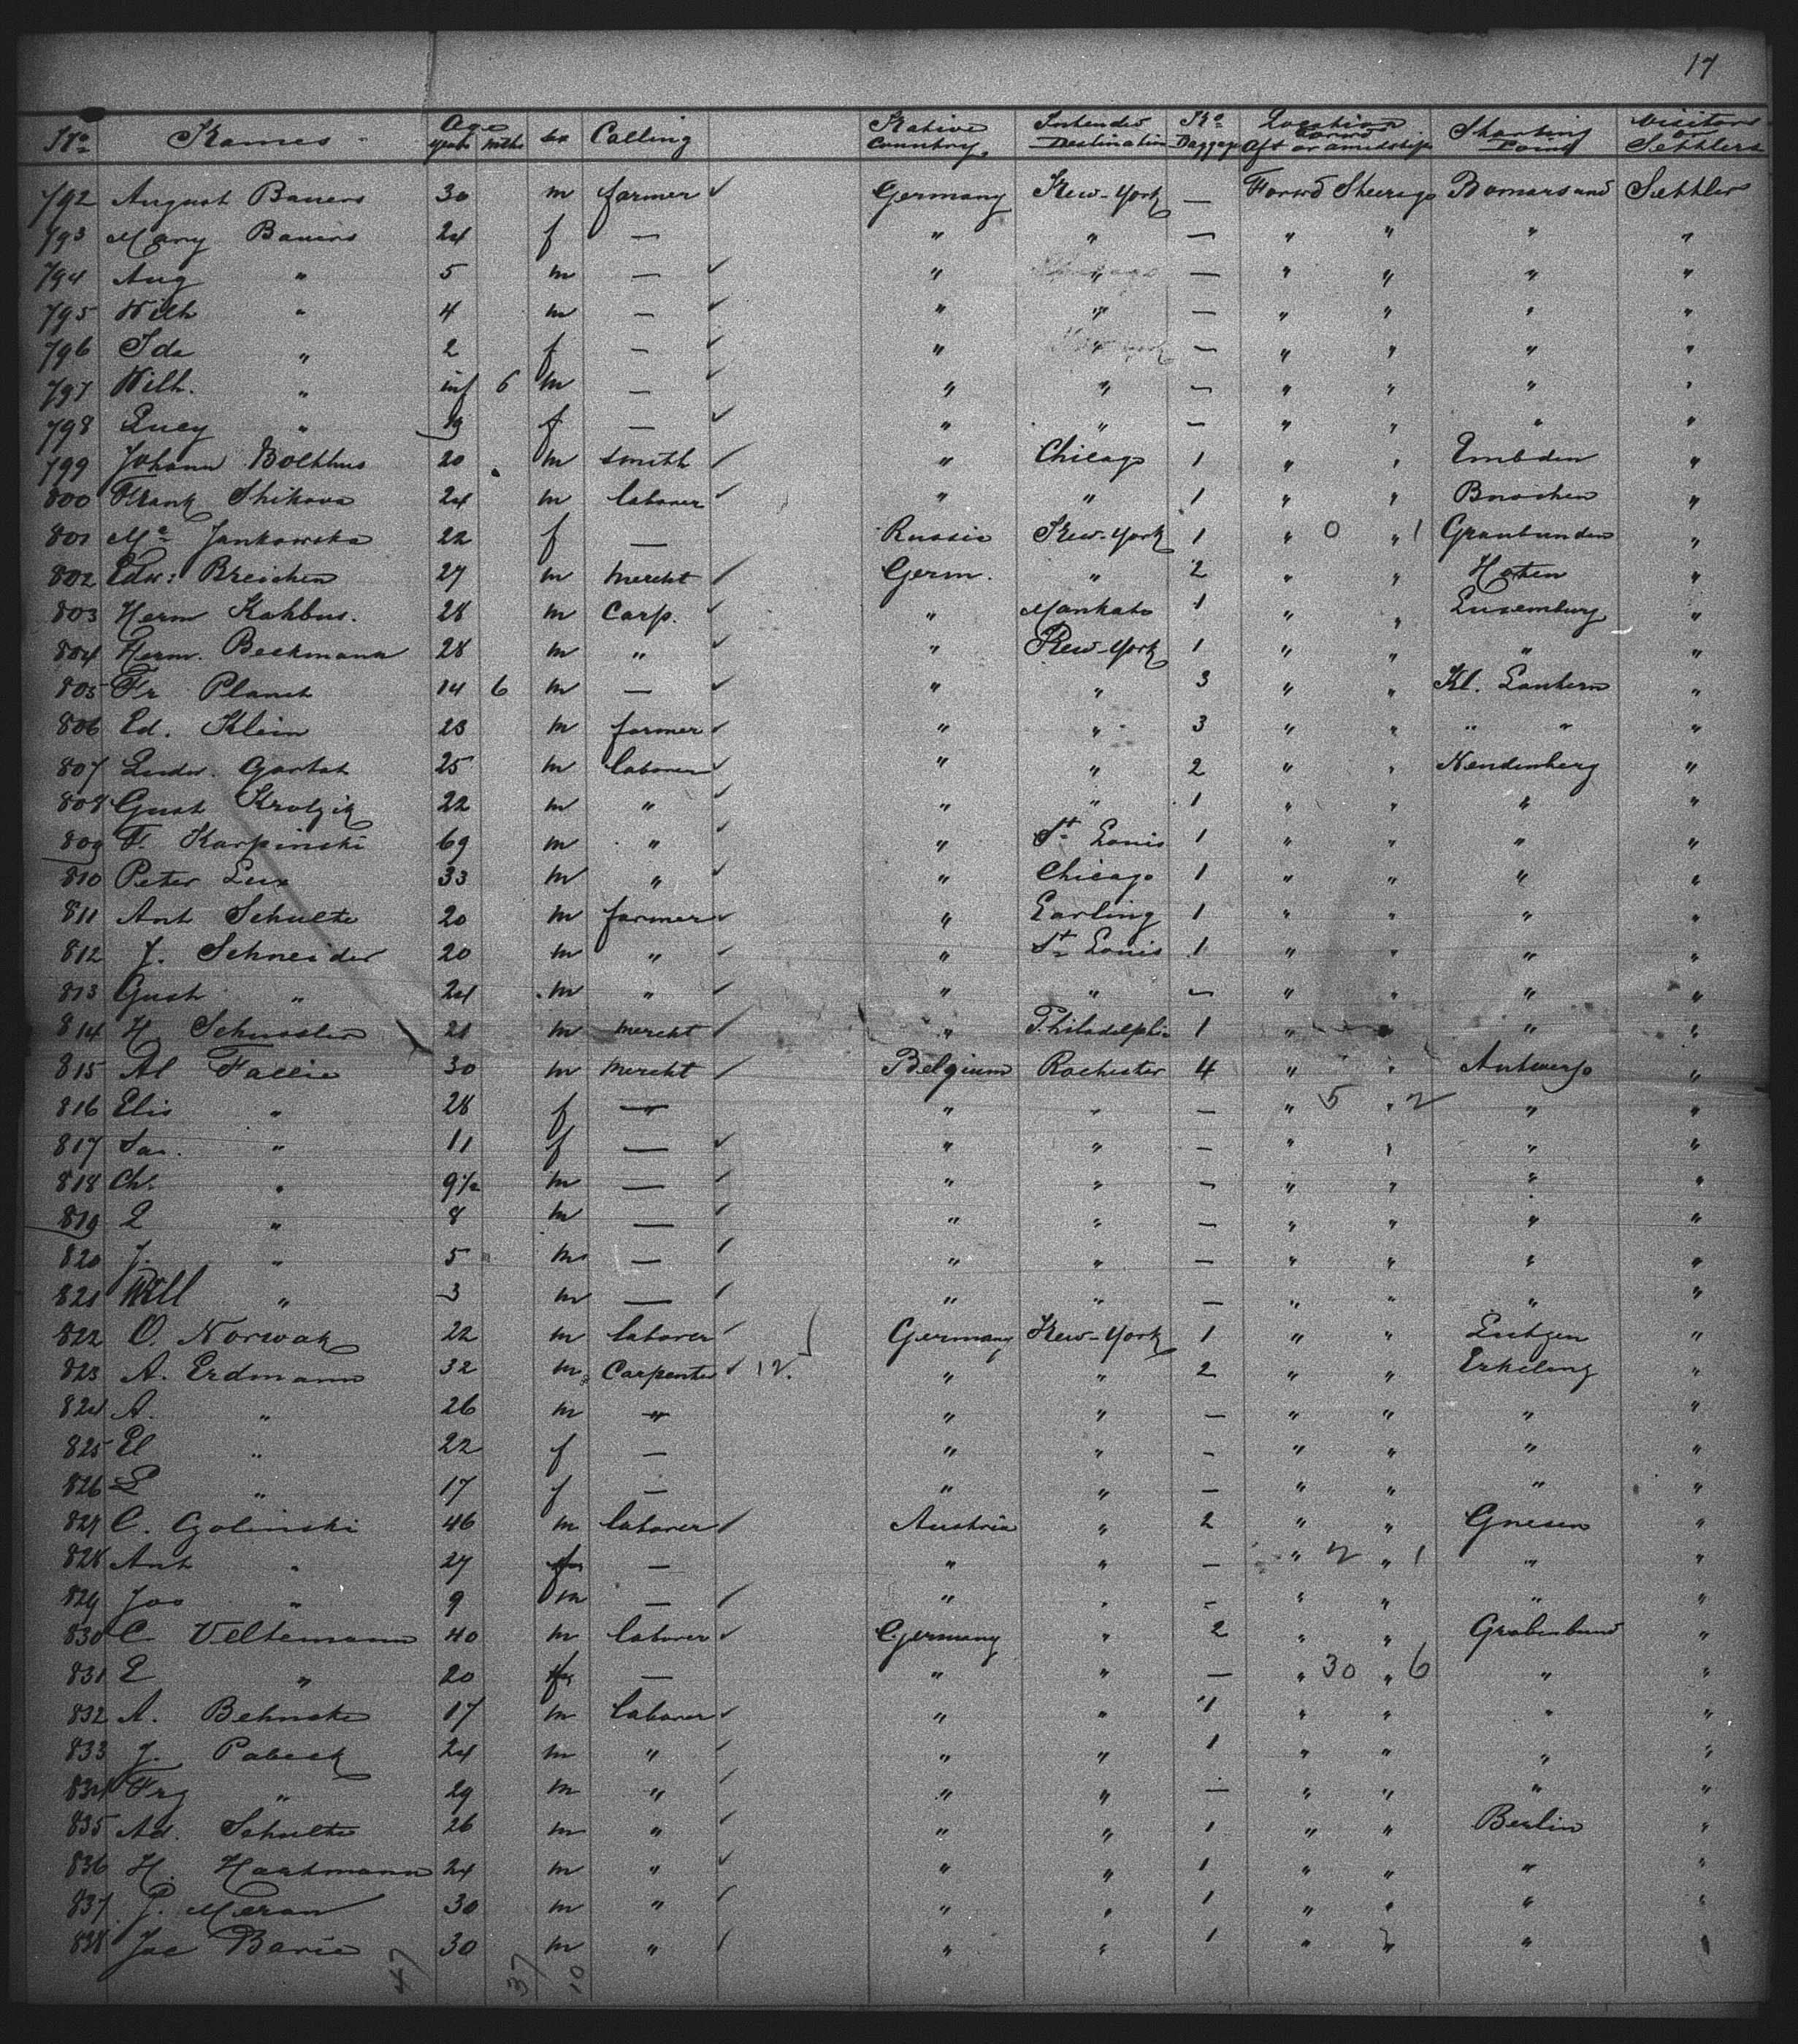 17
No Names Age years mths sex Calling Native Country Intended Destination No Baggage Location Forwd Aft or amidships Starting Point Visitors or Settlers
792 August Bauers 30 m farmer ✓ Germany New-York — Forwd Steerage Settler
793 Mary Bauers 24 f — " " — " " " "
794 Aug " 5 m — ✓ " " — " " " "
795 Wilh " 4 m — ✓ " " — " " " "
796 Ida " 2 f — ✓ " " — " " " "
797 Wilh. " inf 6 m — ✓ " " — " " " "
798 Lucy " 19 f — ✓ " " — " " " "
799 Johann 20 m smith ✓ " Chicago 1 " " Embden "
800 Frank Shikova 24 m laborer ✓ " " 1 " " "
801 Me Jankowska 22 f — Russia New-York 1 " 0 " 1 Graubunden "
802 Edw: Breichen 27 m mercht ✓ Germ. " 2 " " "
803 Herm Kahbus. 28 m Carp. ✓ " Mankato 1 " " Luxemburg "
804 Herm. Beekmann 28 m " ✓ " New-York 1 " " " "
805 Fr Planet 14 6 m — ✓ " " 3 " " Kl. "
806 Ed. Klein 23 m farmer ✓ " " 3 " " " " "
807 Ludw. Gartat 25 m laborer ✓ " " 2 " " Nendenberg "
808 Gust Krolzik 22 m " ✓ " " 1 " " " "
809 F. Karpinski 69 m " ✓ " St Louis 1 " " " "
810 Peter Lux 33 m " ✓ " Chicago 1 " " " "
811 Ant Schulte 20 m farmer ✓ " Earling 1 " " " "
812 J. Schneider 20 m " ✓ " St Louis 1 " " " "
813 Gust " 24 m " ✓ " " — " " " "
814 H Schussler 21 m mercht ✓ " Philadelphia 1 " " " "
815 Al Fallie 30 m mercht ✓ Belgium Rochester 4 " " Antwerp "
816 Elis " 28 f — " " — " 5 " 2 " "
817 " 11 f — ✓ " " — " " " "
818 Ch. " 9½ m — ✓ " " — " " " "
819 L " 8 m — ✓ " " — " " " "
820 J. " 5 m — ✓ " " — " " " "
821 Will " 3 m — ✓ " " — " " " "
822 O. Norwak 22 m laborer ✓ Germany New-York 1 " " Lutzen "
823 A. Erdmann 32 m Carpenter ✓ 12. " " 2 " " Erkeling "
824 A. " 26 m " " " — " " " "
825 El " 22 f — " " — " " " "
826 L " 17 f — " " — " " " "
827 C. Golinski 46 m laborer ✓ Austria " 2 " " Gnesen "
828 Ant " 27 f — " " — " 2 " 1 " "
829 Jos " 9 m — ✓ " " — " " " "
830 C Veltemann 40 m laborer ✓ Germany " 2 " " "
831 E " 20 f — " " — " 30 " 6 " "
832 A. Behnske 17 m laborer ✓ " " 1 " " " "
833 J. Pabesk 24 m " ✓ " " 1 " " " "
834 Frz " 29 m " ✓ " " — " " " "
835 Ad. Schulte 26 m " ✓ " " 1 " " Berlin "
836 H. Hartmann 24 m " ✓ " " 1 " " " "
837 J. Meran 30 m " ✓ " " 1 " " " "
838 Jac Barie 30 m " ✓ " " 1 " " " "
47 37 10